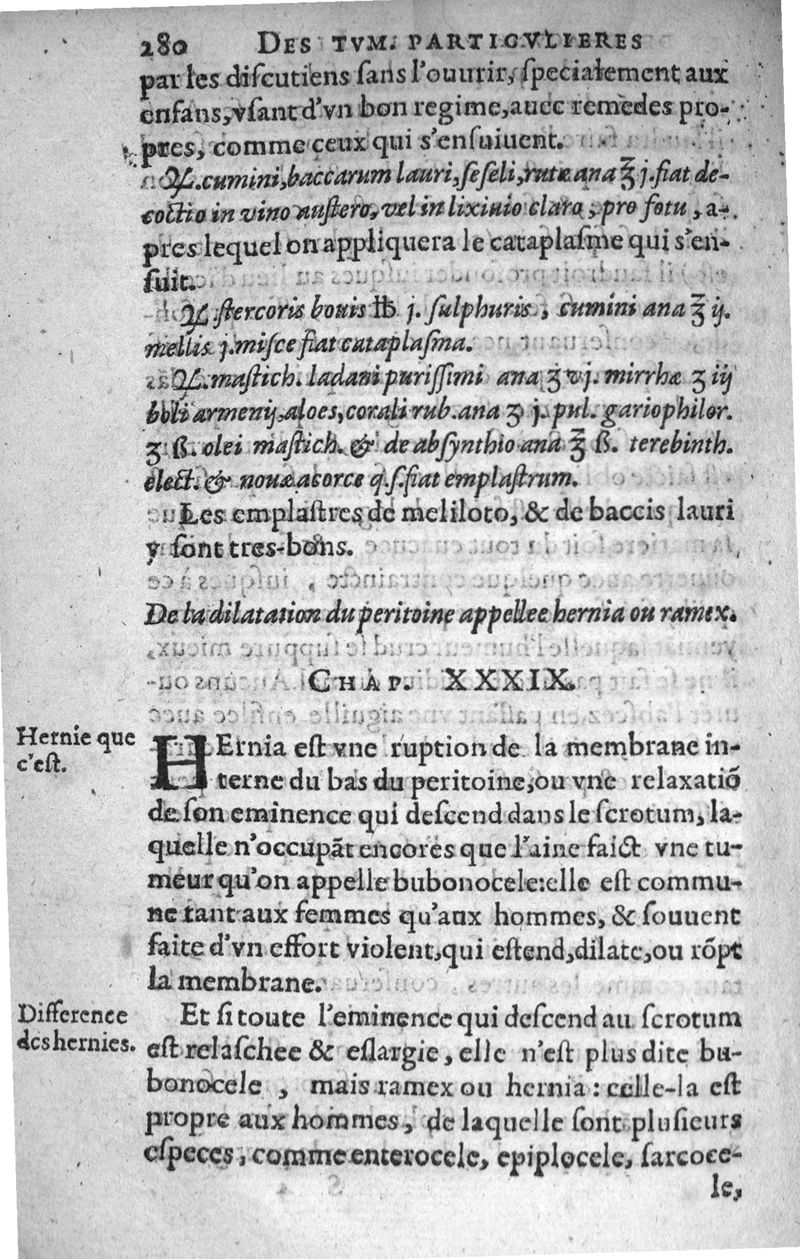 280 DES TVM. PARTICVLIERES
par les discutiens sans l'ouurir, specialement aux
enfans, vsant d'vn bon regime, auec remedes pro-
pres, comme ceux qui s'ensuiuent.
℞. cumini, baccarum lauri, seseli, rutæ ana ℥ j. fiat de-
coctio in vino austero, vel in lixiuio claro, pro fotu, a-
pres lequel on appliquera le cataplasme qui s'en-
suit.
℞. stercoris bouis ℔ j. sulphuris, cumini ana ℥ ij.
mellis j. misce fiat cataplasma.
℞. mastich. ladani purissimi ana ʒ vj. mirrhæ ʒ iij
boli armenij, aloes, corali rub. ana ʒ j. pul. gariophilor.
ʒ ß. olei mastich. & de absynthio ana ℥ ß. terebinth.
elect. & nouæ acorce q.s. fiat emplastrum.
Les emplastres de meliloto, & de baccis lauri
y sont tres-bons.
De la dilatation du peritoine appellee hernia ou ramex.
CHAP. XXXIX.
Hernie que
c'est.
HErnia est vne ruption de la membrane in-
terne du bas du peritoine, ou vne relaxatiõ
de son eminence qui descend dans le scrotum, la-
quelle n'occupãt encores que l'aine faict vne tu-
meur qu'on appelle bubonocele: elle est commu-
ne tant aux femmes qu'aux hommes, & souuent
faite d'vn effort violent, qui estend, dilate, ou rõpt
la membrane.
Difference
des hernies.
Et si toute l'eminence qui descend au scrotum
est relaschee & eslargie, elle n'est plus dite bu-
bonocele, mais ramex ou hernia: celle-la est
propre aux hommes, de laquelle sont plusieurs
especes, comme enterocele, epiplocele, sarcoce-
le,